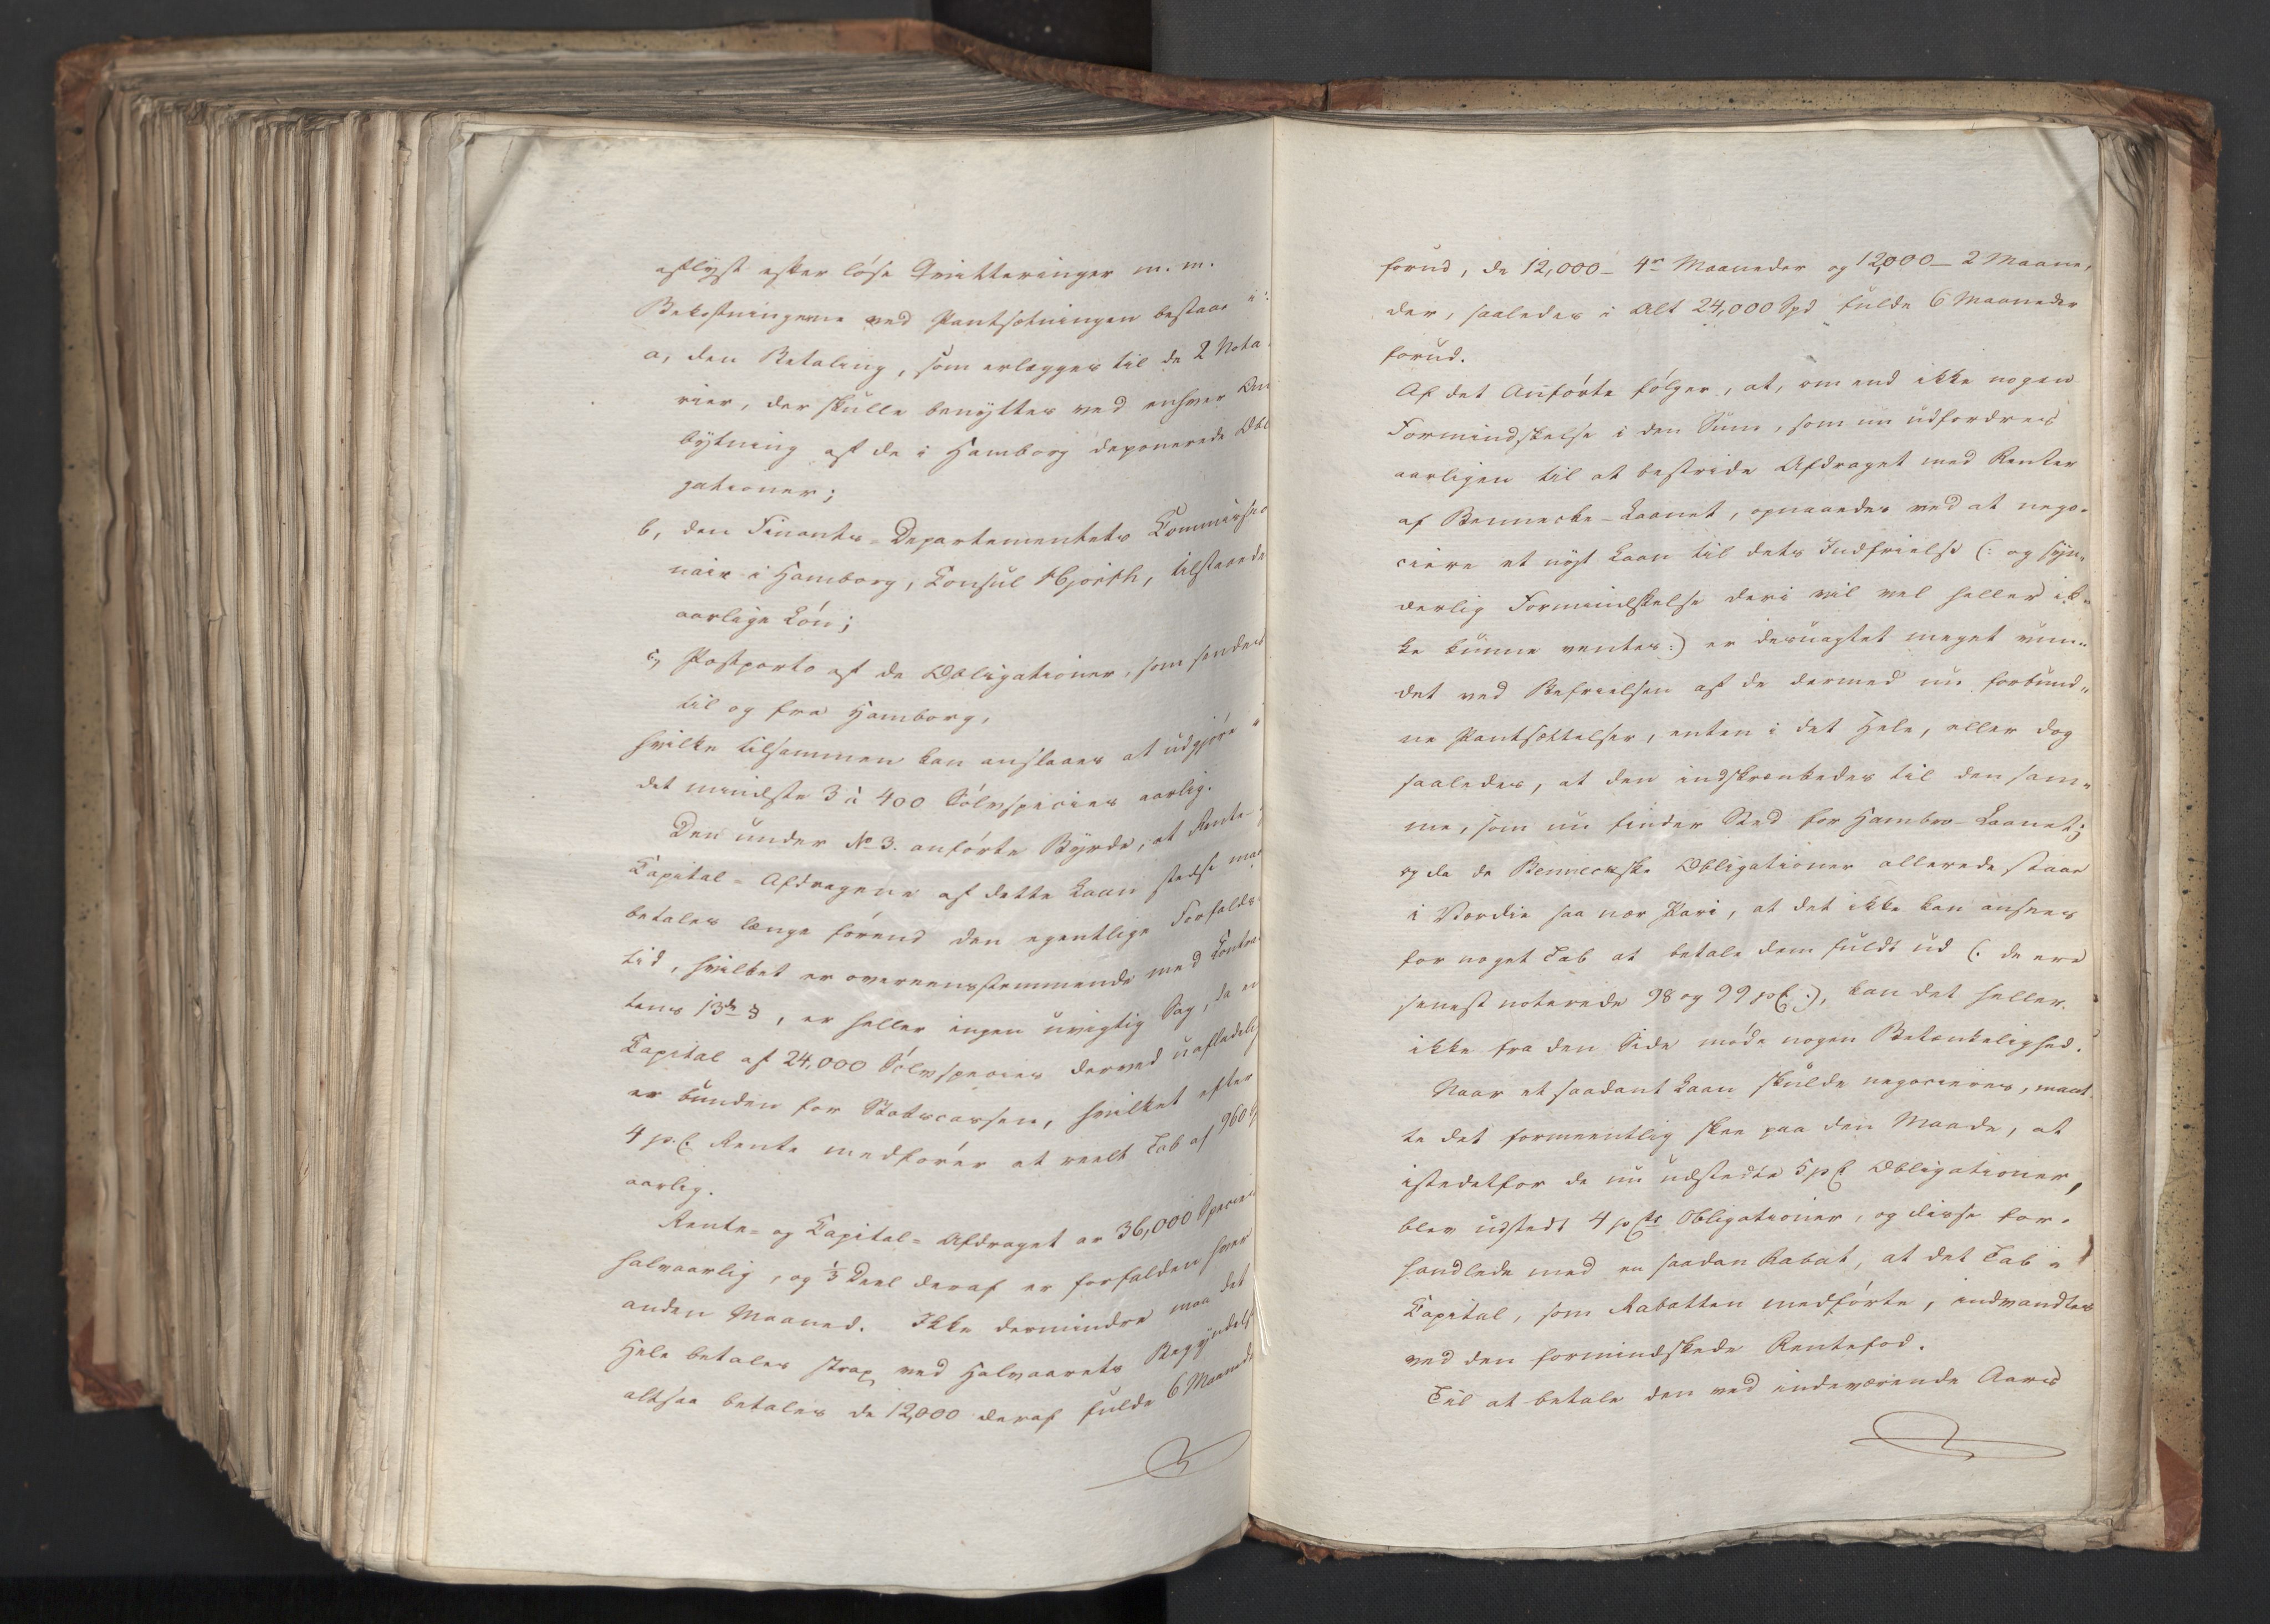 aflyst efter løse Qvitteringer m. m.
Bekostningerne ved Pantsætningen bestaae i:
a, den Betaling, som erlægges til de 2 Nota
rier, der skulle benyttes ved enhver Om
bytning af de i Hamborg deponerede Obli
gationer;
b, den Finants-Departementets Commissio
nair i Hamborg, Consul Hjorth, tilstaaede
aarlige Løn;
c, Postporto af de Obligationer, som sendes
til og fra Hamborg,
hvilke tilsammen kan anslaaes at udgjøre i
det mindste 3 à 400 Sølvspecies aarlig.
Den under No 3. anførte Byrde, at Rente- og
Capital-Afdragene af dette Laan stedse maae
betales længe førend den egentlige Forfalds
tid, hvilket er overeensstemmende med Contrac
tens 13de §, er heller ingen uvigtig Sag, da en
Capital af 24,000 Sølvspecies derved uafladelig
er bunden for Statscassen, hvilket efter
4 p.C. Rente medfører et reelt Tab af 960
aarlig.
Rente- og Capital-Afdraget er 36,000 Species
halvaarlig, og 1/3 Deel deraf er forfalden hver
anden Maaned. Ikke dermindre maa det
Hele betales strax ved Halvaarets Begyndelse
altsaa betales de 12,000 deraf fulde 6 Maaneder
forud, de 12,000 - 4re Maaneder og 12,000 - 2 Maane,
der, saaledes i Alt 24,000 Spd fulde 6 Maaneder
forud.
Af det Anførte følger, at, om end ikke nogen
Formindskelse i den Sum, som nu udfordres
aarligen til at bestride Afdraget med Renter
af Bennecke-Laanet, opnaaedes ved at nego-
ciere et nyt Laan til dets Indfrielse (: og syn-
derlig Formindskelse deri vil vel heller ik-
ke kunne ventes:) er desuagtet meget vun-
det ved Befrielsen af de dermed nu forbund-
ne Pantsættelser, enten i det Hele, eller dog
saaledes, at den indskrænkedes til den sam-
me, som nu finder Sted for Hambro-Laanet;
og da de Benneckske Obligationer allerede staae
i Værdie saa nær Pari, at det ikke kan ansees
for noget Tab at betale dem fuldt ud (: de ere
senest noterede 98 og 99 pC :), kan det heller
ikke fra den Side møde nogen Betænkelighed.
Naar et saadant Laan skulde negocieres, maat-
te det formeentlig skee paa den Maade, at
istedetfor de nu udstedte 5 pC Obligationer,
blev udstedt 4 pCts Obligationer, og disse for-
handlede med en saadan Rabat, at det Tab i
Capital, som Rabatten medførte, indvandtes
ved den formindskede Rentefod.
Til at betale den ved indeværende Aars